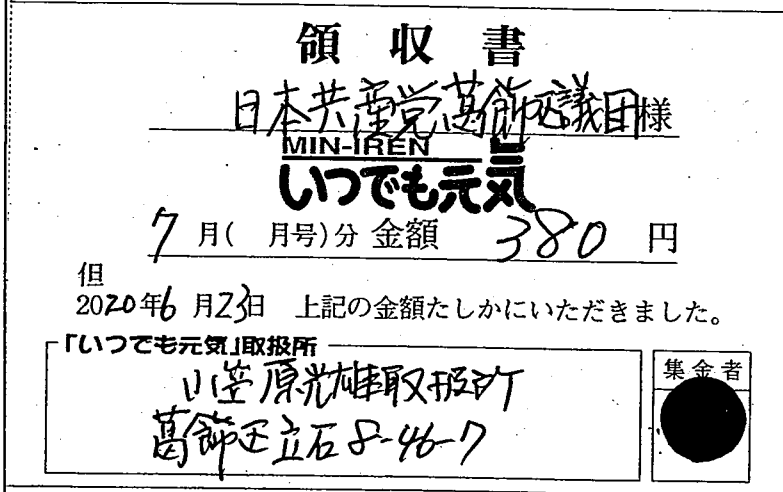 領収書
日本共産党葛飾区議団様
MIN-IREN
いつでも元気
7月( 月号)分 金額 380 円
但
2020年6月23日 上記の金額たしかにいただきました。
「いつでも元気」取扱所
小笠原光雄取扱所
葛飾区立石8-46-7
集金者